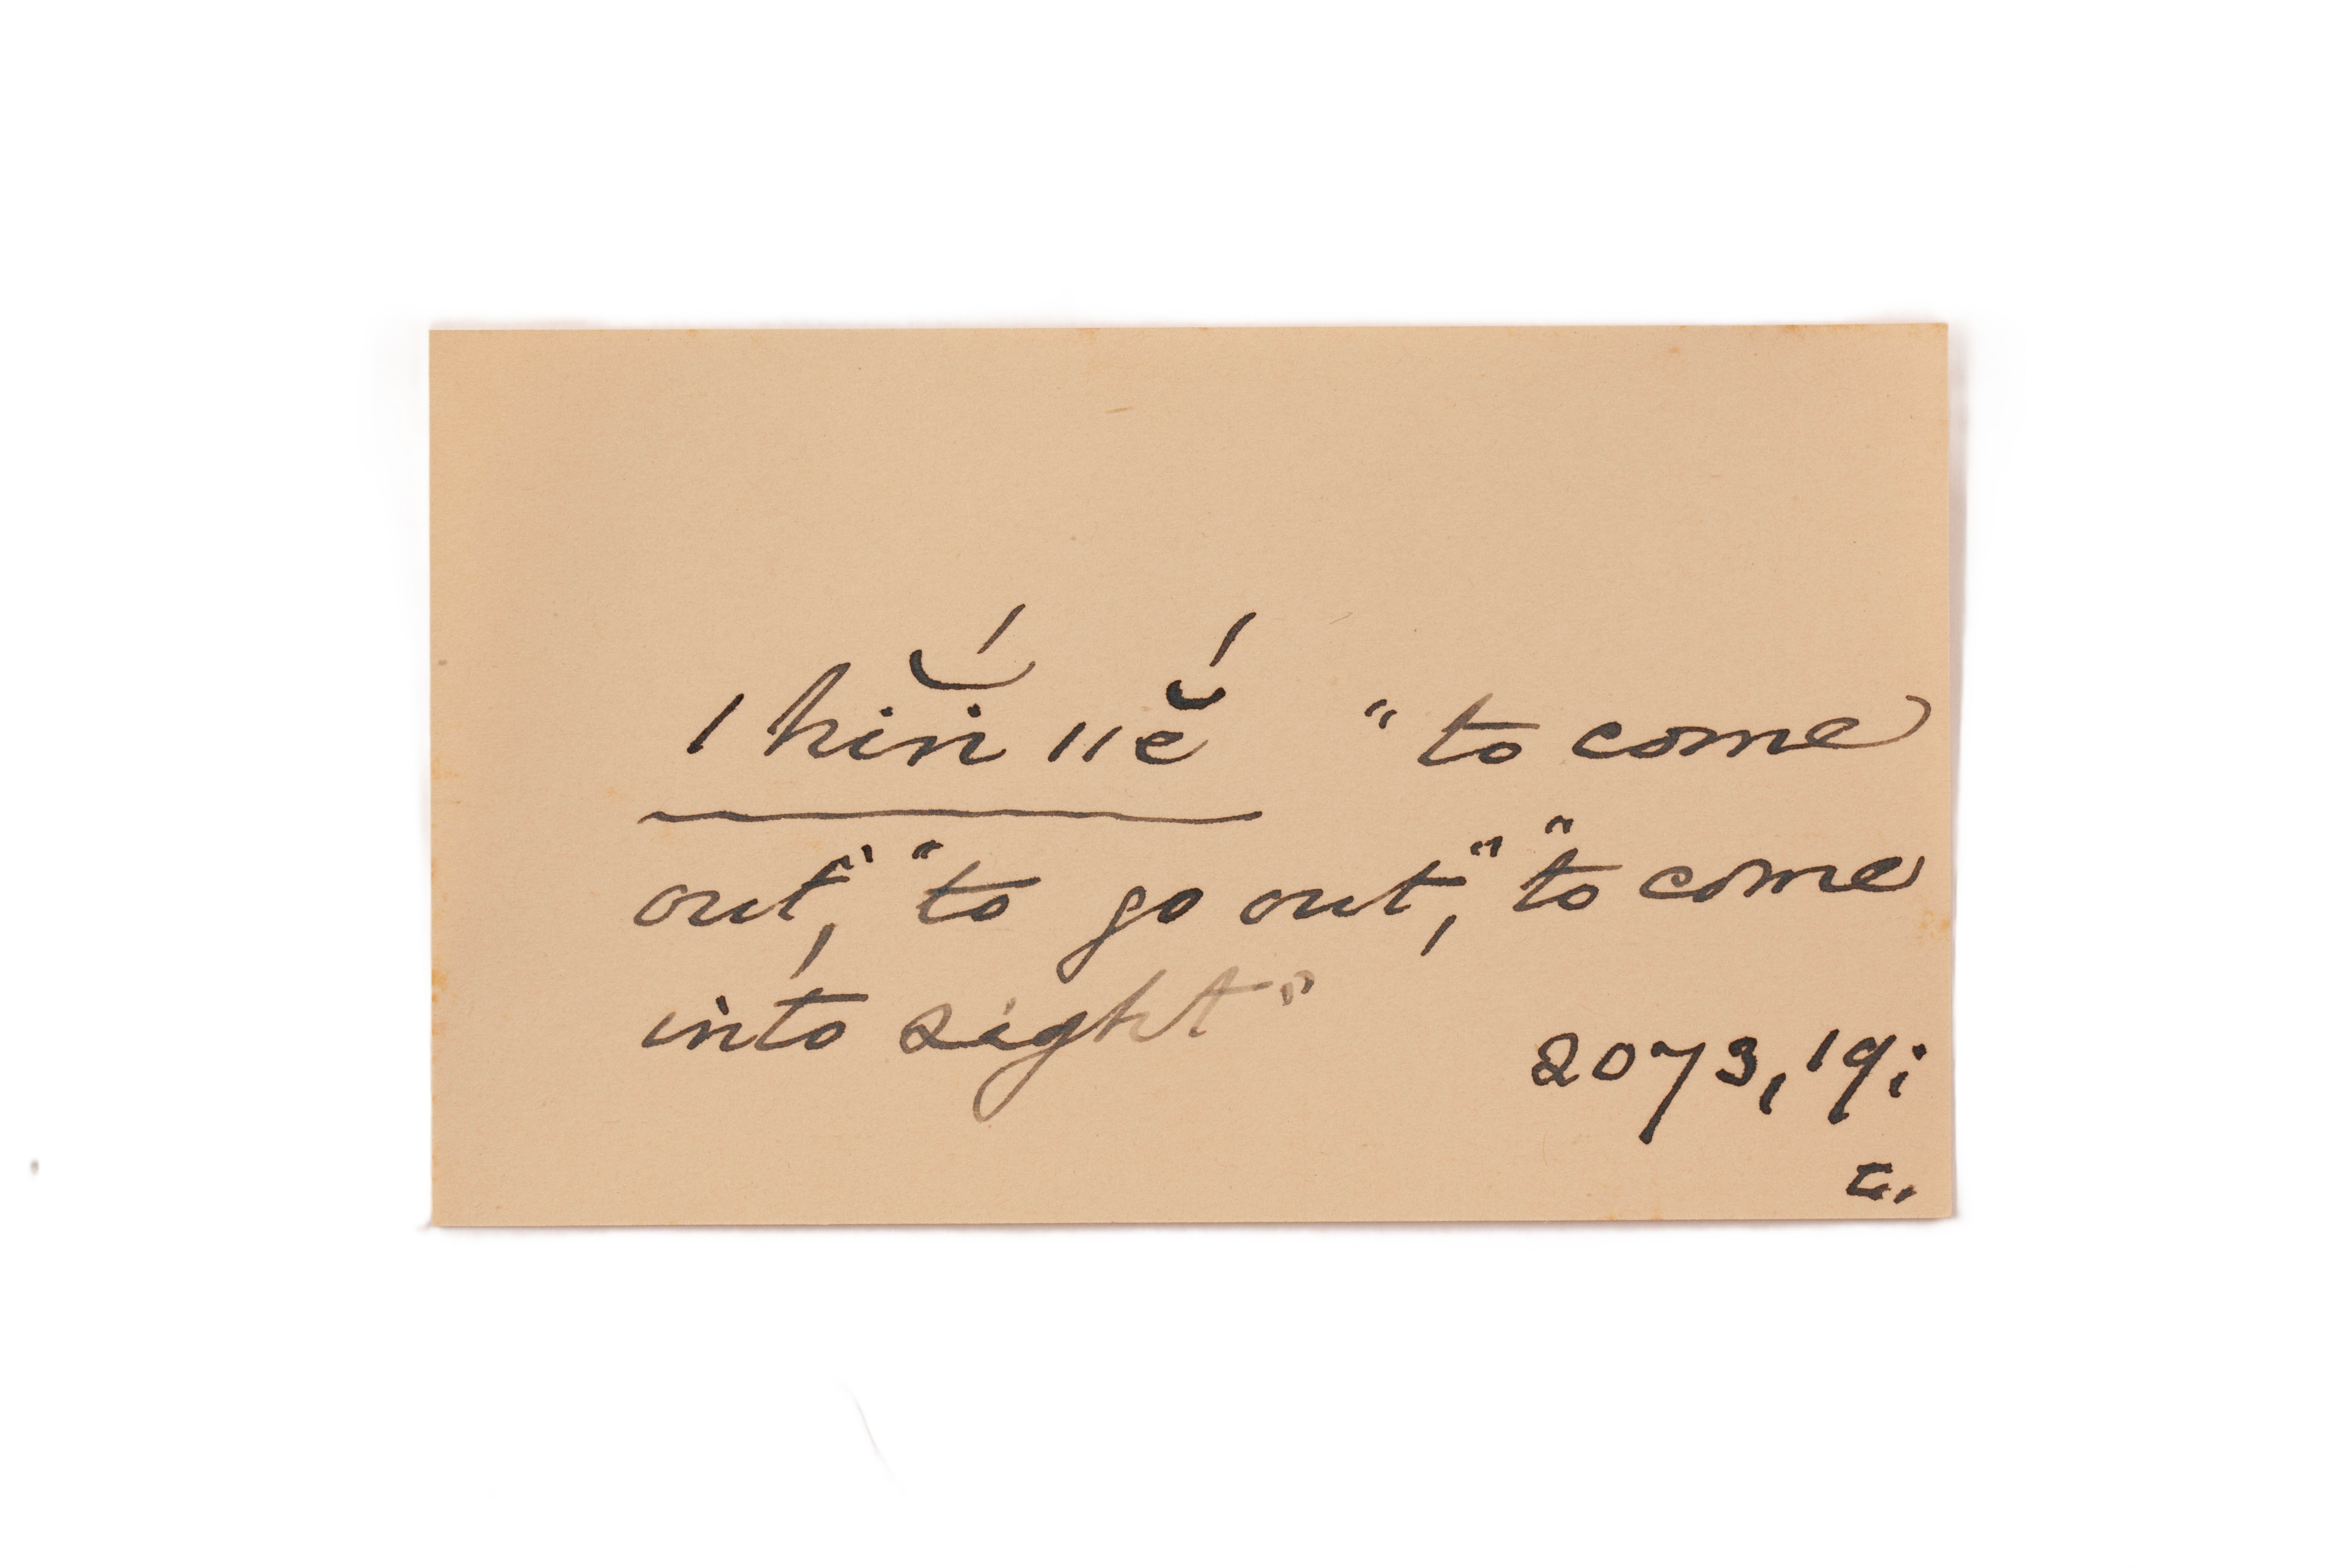 ıhĭ́n ııĕ́ "to come
out," "to go out," "to come
into sight"
2073, 19;
c.